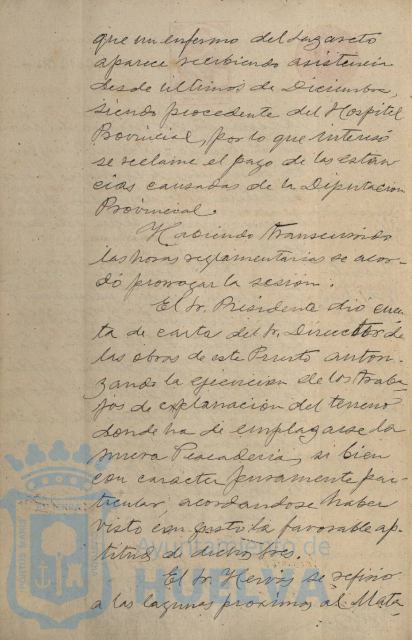 que un enfermo del Lazareto
aparece recibiendo asistencia
desde ultimos de Diciembre,
siendo procedente del Hospital
Provincial, por lo que interesó
se reclame el pago de las estan-
cias causadas de la Diputacion
Provincial.
Habiendo transcurrido
las horas reglamentarias se acor-
dó prorrogar la sesión.
El Sr. Presidente dió cuen-
ta de carta del Sr. Director de
las obras de este Puerto autori-
zando la ejecucion de los traba-
jos de explanación del terreno
donde ha de emplazarse la
nueva Pescaderia, si bien
con caracter puramente par-
ticular, acordandose haber
visto con gusto la favorable ap-
titud de dicho Sres.
El Sr. Hervás se refirió
a las lagunas proximas al Mata-
Ayuntamiento de
HUELVA